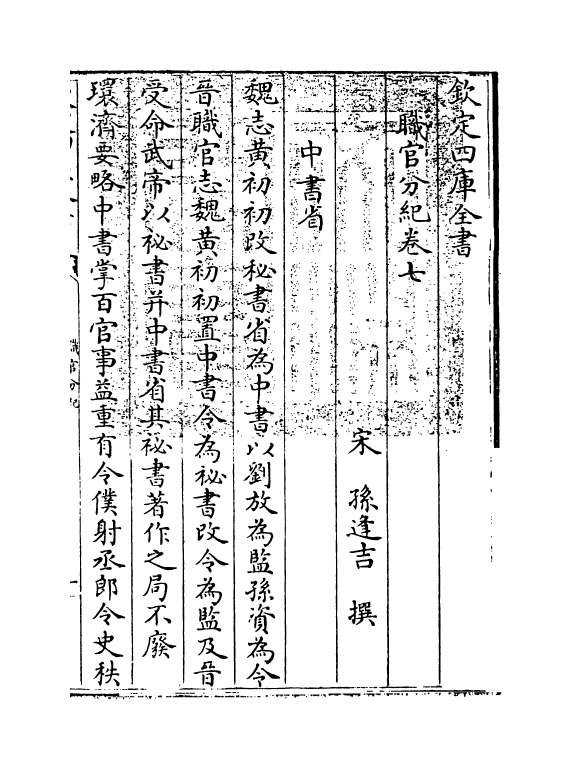 欽定四庫全書
職官分紀卷七
宋 孫逢吉 撰
中書省
魏志黄初初改秘書省為中書以劉放為監孫資為令
晉職官志魏黄初初置中書令為祕書改令為監及晉
受命武帝以祕書并中書省其祕書著作之局不廢
環濟要略中書掌百官事益重有令僕射丞郎令史秩
職官分紀